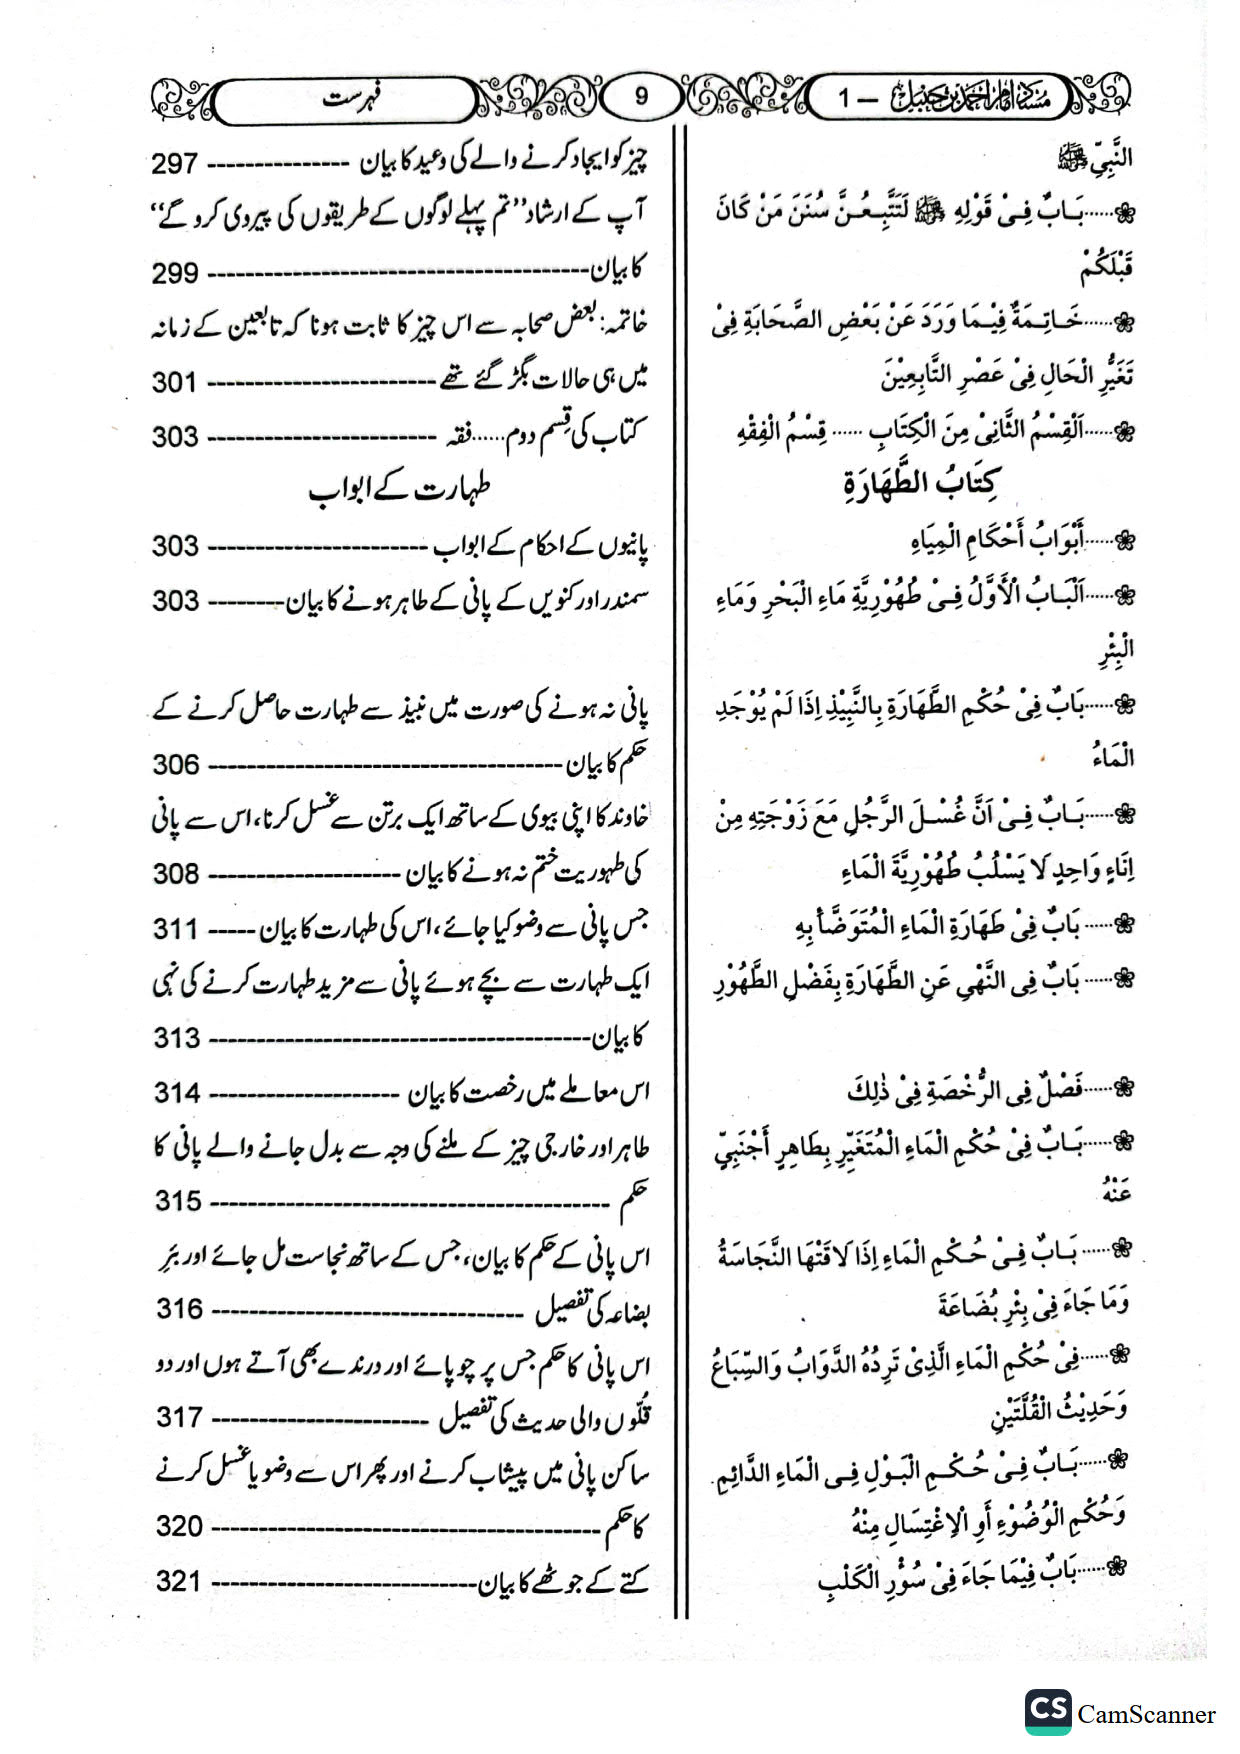 مسند امام احمد بن حنبل — 1
9
فہرست
النَّبِيِّ ﷺ
چیز کو ایجاد کرنے والے کی وعید کا بیان --------------- 297
❀......بَابٌ فِيْ قَوْلِهِ ﷺ لَتَتَّبِعُنَّ سُنَنَ مَنْ كَانَ
آپ کے ارشاد ’’تم پہلے لوگوں کے طریقوں کی پیروی کرو گے‘‘
قَبْلَكُمْ
کا بیان---------------------------------------- 299
❀......خَاتِمَةٌ فِيْمَا وَرَدَ عَنْ بَعْضِ الصَّحَابَةِ فِيْ
خاتمہ: بعض صحابہ سے اس چیز کا ثابت ہونا کہ تابعین کے زمانہ
تَغَيُّرِ الْحَالِ فِيْ عَصْرِ التَّابِعِيْنَ
میں ہی حالات بگڑ گئے تھے------------------------ 301
❀......اَلْقِسْمُ الثَّانِيْ مِنَ الْكِتَابِ ...... قِسْمُ الْفِقْهِ
کتاب کی قِسم دوم......فقہ ------------------------ 303
كِتَابُ الطَّهَارَةِ
طہارت کے ابواب
❀......أَبْوَابُ أَحْكَامِ الْمِيَاهِ
پانیوں کے احکام کے ابواب ----------------------- 303
❀......اَلْبَابُ الْأَوَّلُ فِيْ طُهُوْرِيَّةِ مَاءِ الْبَحْرِ وَمَاءِ
سمندر اور کنویں کے پانی کے طاہر ہونے کا بیان-------- 303
الْبِئْرِ
❀......بَابٌ فِيْ حُكْمِ الطَّهَارَةِ بِالنَّبِيْذِ اِذَا لَمْ يُوْجَدِ
پانی نہ ہونے کی صورت میں نبیذ سے طہارت حاصل کرنے کے
الْمَاءُ
حکم کا بیان ------------------------------------- 306
❀......بَابٌ فِيْ اَنَّ غُسْلَ الرَّجُلِ مَعَ زَوْجَتِهِ مِنْ
خاوند کا اپنی بیوی کے ساتھ ایک برتن سے غسل کرنا، اس سے پانی
اِنَاءٍ وَاحِدٍ لَا يَسْلُبُ طُهُوْرِيَّةَ الْمَاءِ
کی طہوریت ختم نہ ہونے کا بیان -------------------- 308
❀...... بَابٌ فِيْ طَهَارَةِ الْمَاءِ الْمُتَوَضَّأِ بِهِ
جس پانی سے وضو کیا جائے، اس کی طہارت کا بیان ----- 311
❀...... بَابٌ فِي النَّهْيِ عَنِ الطَّهَارَةِ بِفَضْلِ الطَّهُوْرِ
ایک طہارت سے بچے ہوئے پانی سے مزید طہارت کرنے کی نہی
کا بیان---------------------------------------- 313
❀......فَصْلٌ فِي الرُّخْصَةِ فِيْ ذٰلِكَ
اس معاملے میں رخصت کا بیان -------------------- 314
❀......بَابٌ فِيْ حُكْمِ الْمَاءِ الْمُتَغَيِّرِ بِطَاهِرٍ أَجْنَبِيٍّ
طاہر اور خارجی چیز کے ملنے کی وجہ سے بدل جانے والے پانی کا
عَنْهُ
حکم ------------------------------------------ 315
❀...... بَابٌ فِيْ حُكْمِ الْمَاءِ اِذَا لَاقَتْهَا النَّجَاسَةُ
اس پانی کے حکم کا بیان، جس کے ساتھ نجاست مل جائے اور بئرِ
وَمَا جَاءَ فِيْ بِئْرِ بُضَاعَةَ
بضاعہ کی تفصیل --------------------------------- 316
❀......فِيْ حُكْمِ الْمَاءِ الَّذِيْ تَرِدُهُ الدَّوَابُ وَالسِّبَاعُ
اس پانی کا حکم جس پر چوپائے اور درندے بھی آتے ہوں اور دو
وَحَدِيْثُ الْقُلَّتَيْنِ
قُلّوں والی حدیث کی تفصیل ----------------------- 317
❀......بَابٌ فِيْ حُكْمِ الْبَوْلِ فِي الْمَاءِ الدَّائِمِ
ساکن پانی میں پیشاب کرنے اور پھر اس سے وضو یا غسل کرنے
وَحُكْمِ الْوُضُوْءِ أَوِ الْاِغْتِسَالِ مِنْهُ
کا حکم ----------------------------------------- 320
❀......بَابٌ فِيْمَا جَاءَ فِيْ سُؤْرِ الْكَلْبِ
کتے کے جوٹھے کا بیان---------------------------- 321
CS CamScanner